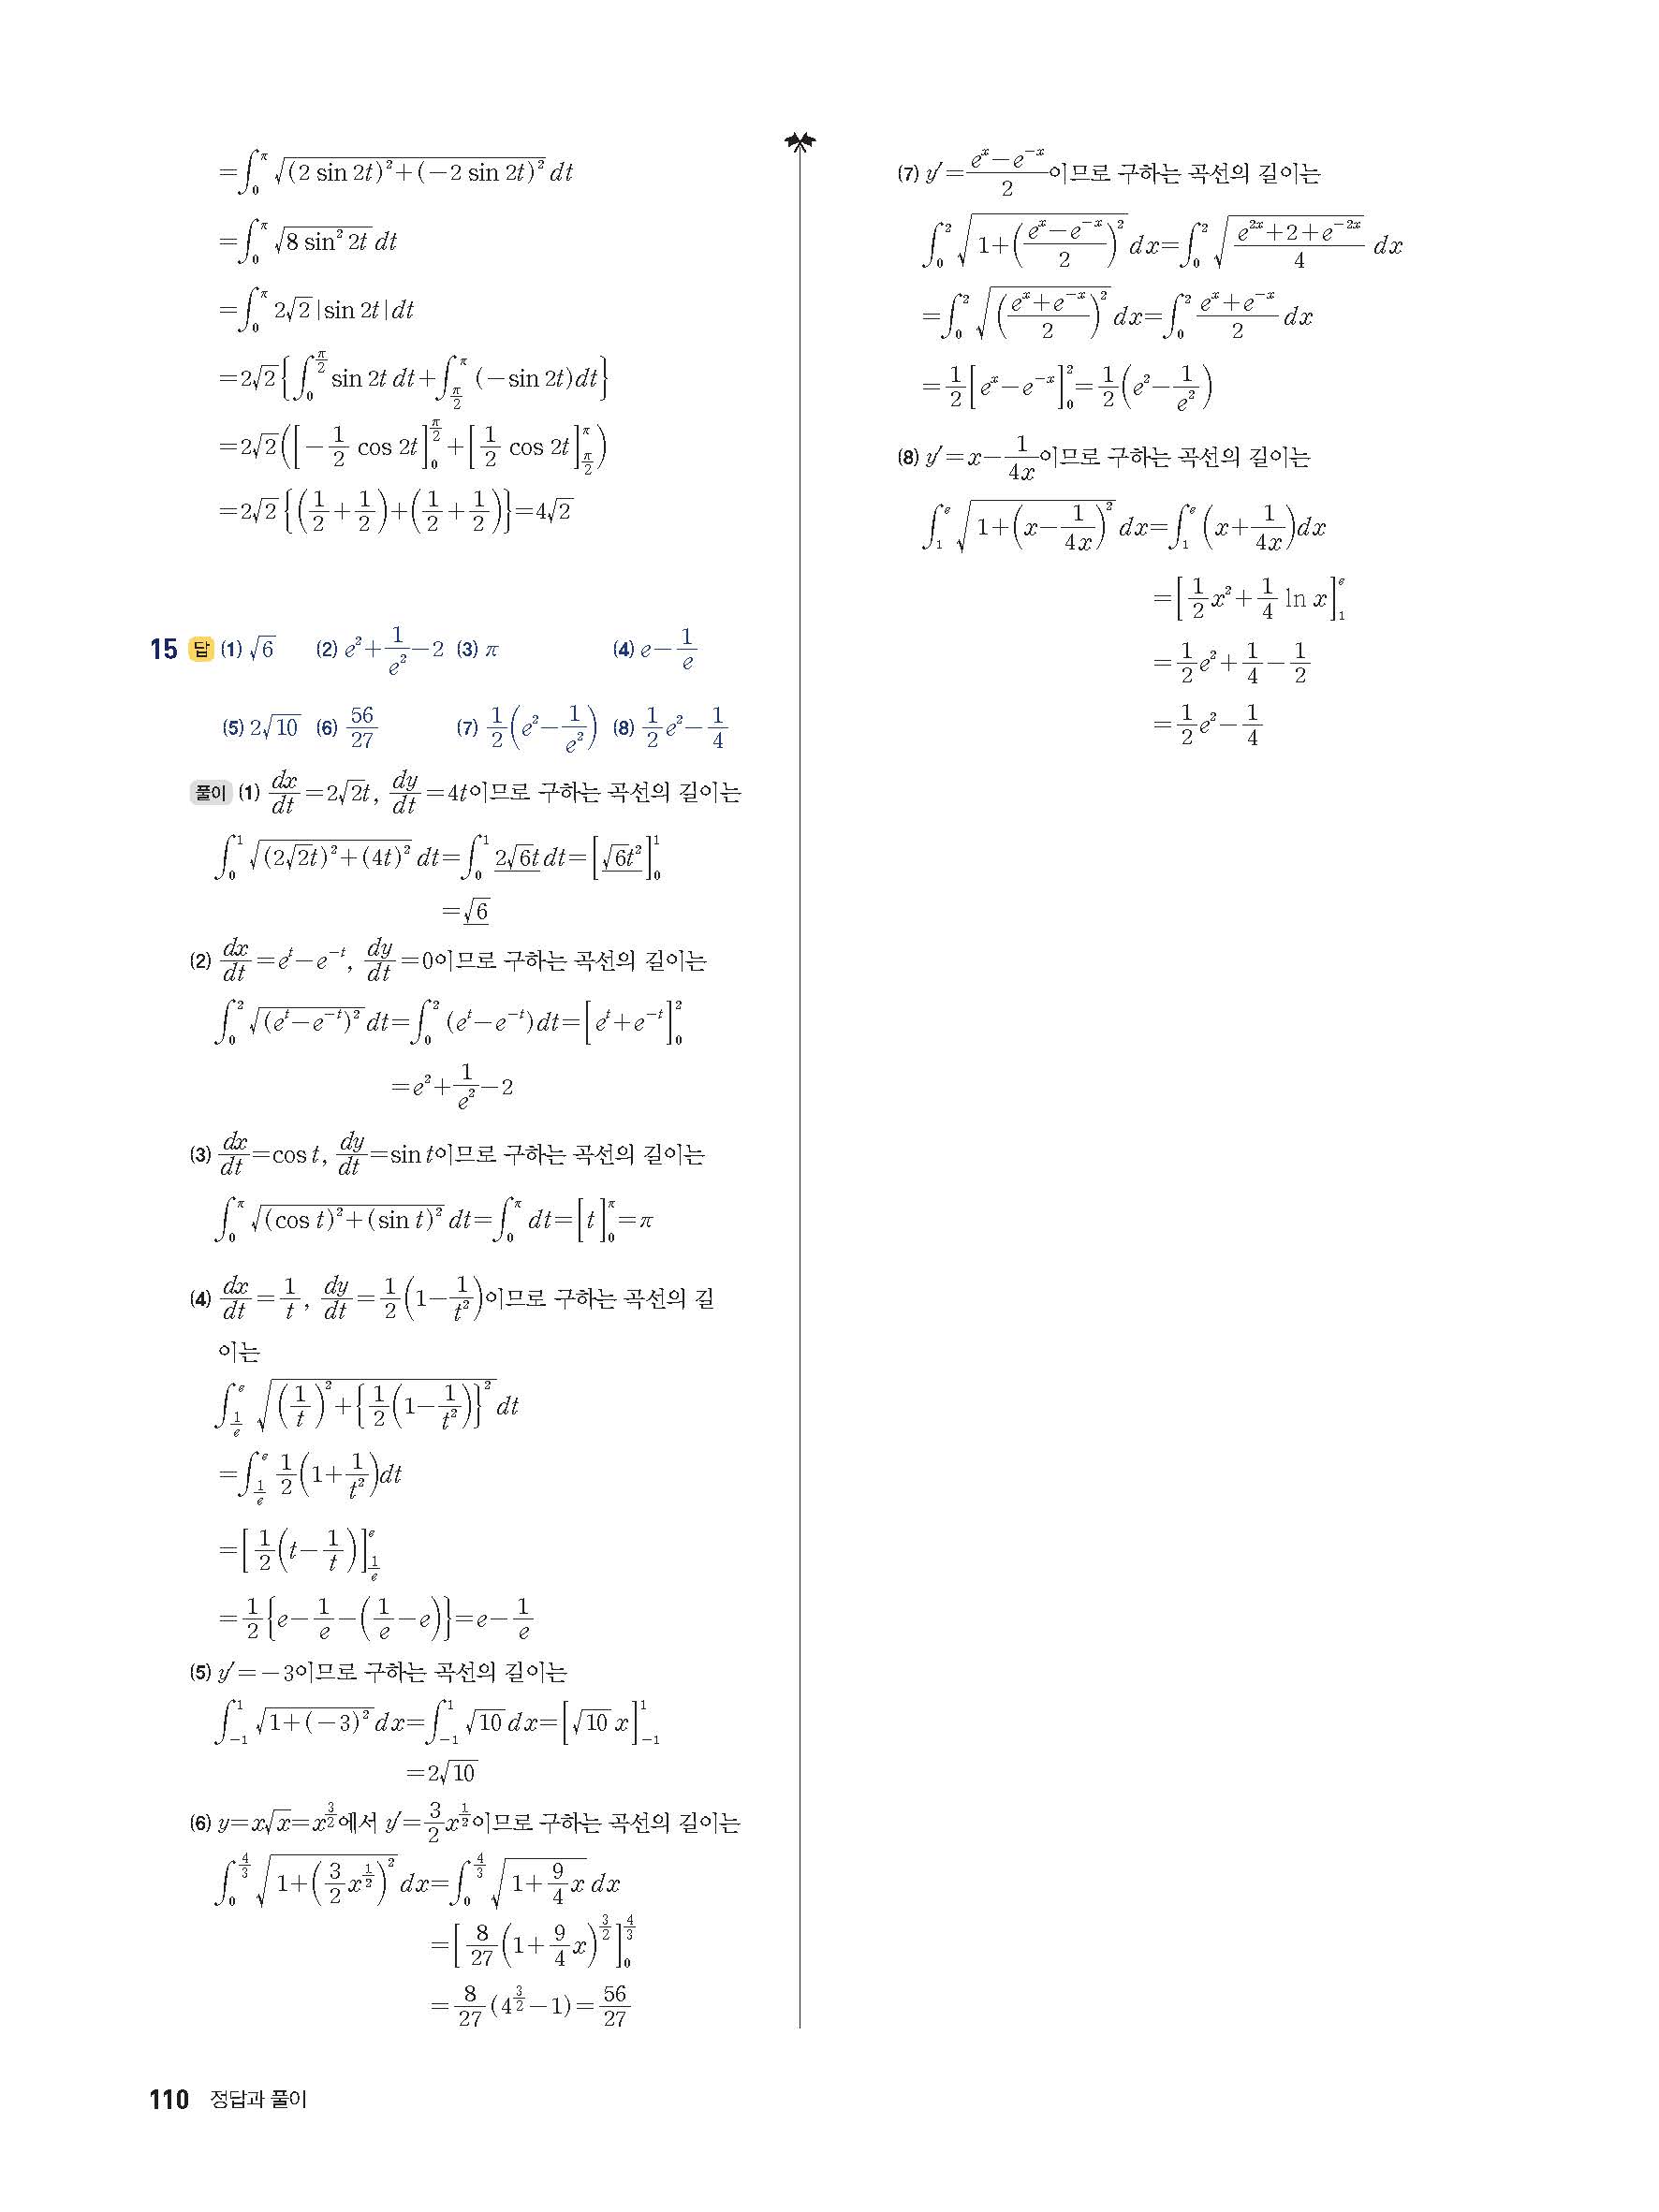 =∫₀^π √((2 sin 2t)²+(−2 sin 2t)²) dt
=∫₀^π √(8 sin² 2t) dt
=∫₀^π 2√2|sin 2t|dt
=2√2{∫₀^(π/2) sin 2t dt+∫_(π/2)^π (−sin 2t)dt}
=2√2([−1/2 cos 2t]₀^(π/2)+[1/2 cos 2t]_(π/2)^π)
=2√2{(1/2+1/2)+(1/2+1/2)}=4√2
15 답 (1) √6 (2) e²+1/e²−2 (3) π (4) e−1/e
(5) 2√10 (6) 56/27 (7) 1/2(e²−1/e²) (8) 1/2e²−1/4
풀이 (1) dx/dt=2√2t, dy/dt=4t이므로 구하는 곡선의 길이는
∫₀¹ √((2√2t)²+(4t)²) dt=∫₀¹ 2√6t dt=[√6t²]₀¹
=√6
(2) dx/dt=e^t−e^(−t), dy/dt=0이므로 구하는 곡선의 길이는
∫₀² √((e^t−e^(−t))²) dt=∫₀² (e^t−e^(−t))dt=[e^t+e^(−t)]₀²
=e²+1/e²−2
(3) dx/dt=cos t, dy/dt=sin t이므로 구하는 곡선의 길이는
∫₀^π √((cos t)²+(sin t)²) dt=∫₀^π dt=[t]₀^π=π
(4) dx/dt=1/t, dy/dt=1/2(1−1/t²)이므로 구하는 곡선의 길
이는
∫_(1/e)^e √((1/t)²+{1/2(1−1/t²)}²) dt
=∫_(1/e)^e 1/2(1+1/t²)dt
=[1/2(t−1/t)]_(1/e)^e
=1/2{e−1/e−(1/e−e)}=e−1/e
(5) y′=−3이므로 구하는 곡선의 길이는
∫₋₁¹ √(1+(−3)²) dx=∫₋₁¹ √10 dx=[√10 x]₋₁¹
=2√10
(6) y=x√x=x^(3/2)에서 y′=3/2x^(1/2)이므로 구하는 곡선의 길이는
∫₀^(4/3) √(1+(3/2x^(1/2))²) dx=∫₀^(4/3) √(1+9/4x) dx
=[8/27(1+9/4x)^(3/2)]₀^(4/3)
=8/27(4^(3/2)−1)=56/27
(7) y′=(e^x−e^(−x))/2이므로 구하는 곡선의 길이는
∫₀² √(1+((e^x−e^(−x))/2)²) dx=∫₀² √((e^(2x)+2+e^(−2x))/4) dx
=∫₀² √(((e^x+e^(−x))/2)²) dx=∫₀² (e^x+e^(−x))/2 dx
=1/2[e^x−e^(−x)]₀²=1/2(e²−1/e²)
(8) y′=x−1/4x이므로 구하는 곡선의 길이는
∫₁^e √(1+(x−1/4x)²) dx=∫₁^e (x+1/4x)dx
=[1/2x²+1/4 ln x]₁^e
=1/2e²+1/4−1/2
=1/2e²−1/4
110 정답과 풀이